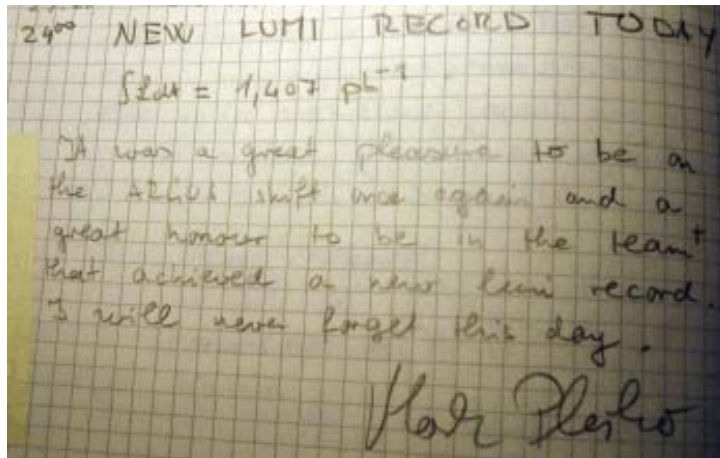 24⁰⁰ NEW LUMI RECORD TODAY
∫Ldt = 1,407 pb⁻¹
It was a great pleasure to be on
the ARGUS shift once again and a
great honour to be in the team⁺
that achieved a new lumi record.
I will never forget this day.